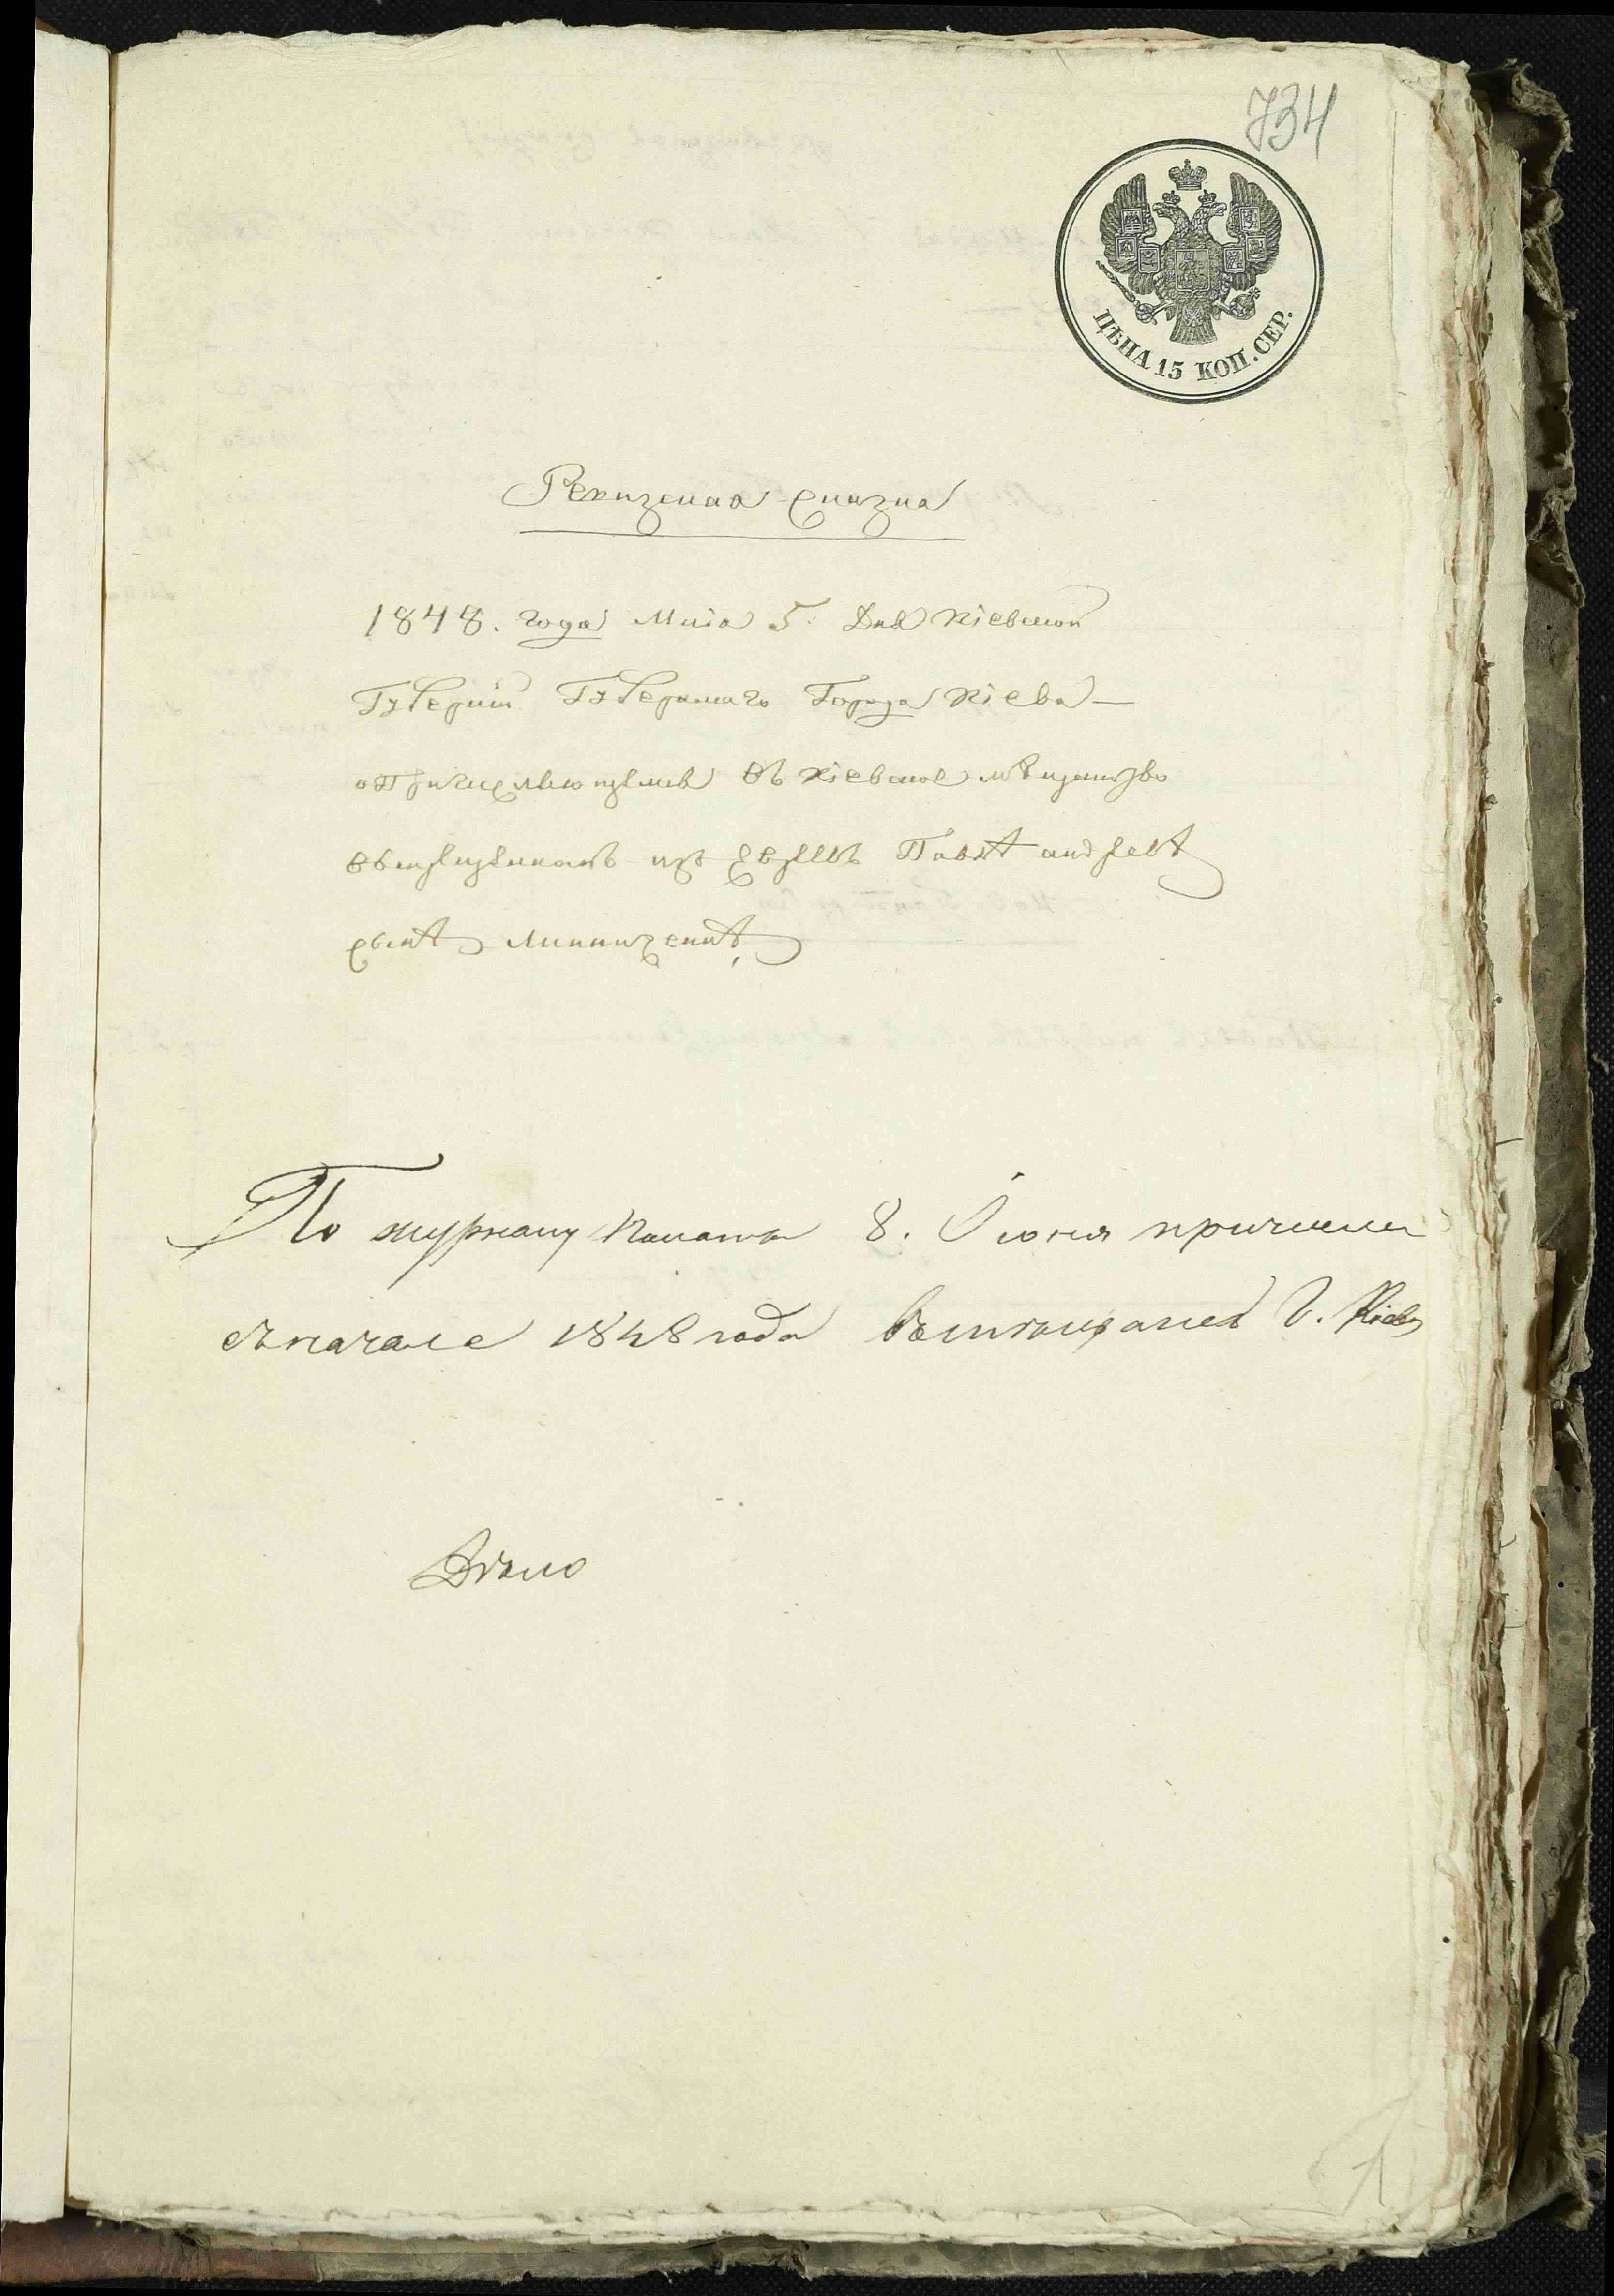 734
ЦѢНА 15 КОП. СЕР.
Ревизская сказка
1848. года Маія 5. Дня Кіевской
Губерніи Губернскаго Города Кіева —
о причисляющемся въ Кіевское мѣщанство
изъ Павлѣ Андреевѣ
сынѣ
По журналу Палаты 8. Іюня причислен
съ начала 1848 года въ мѣщане г. Кіева
Дѣло
1